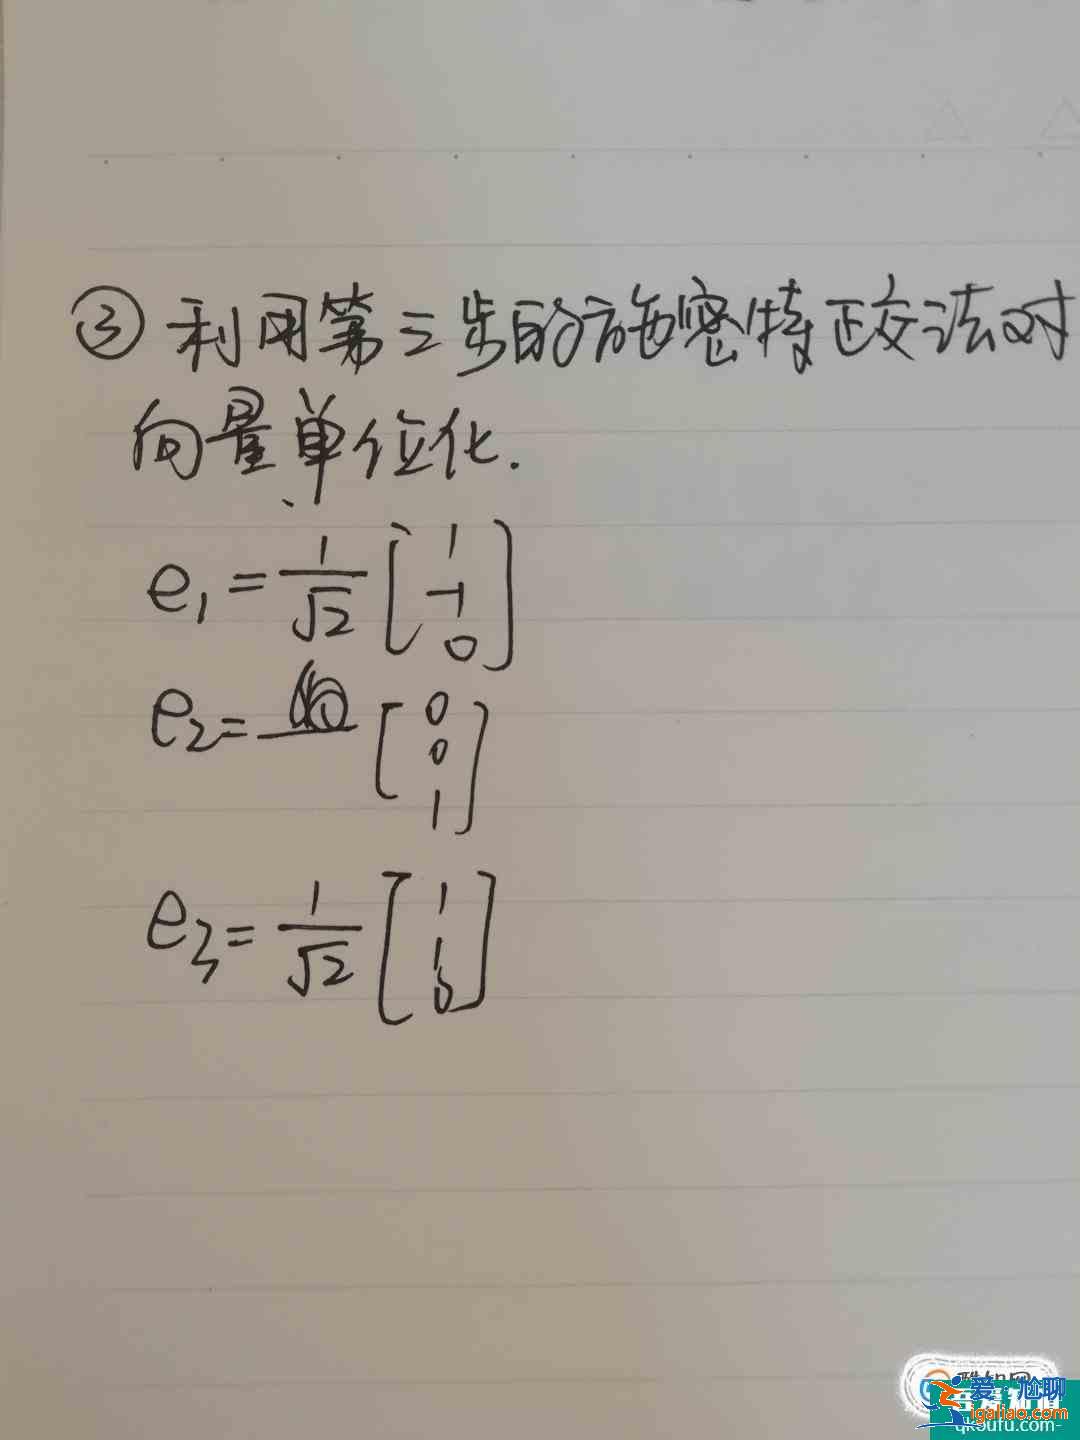 ③利用第三步的施密特正交法对
向量单位化.
e₁ = 1/√2 [1 -1 0]
e₂ = [0 0 1]
e₃ = 1/√2 [1 1 0]
爱尬聊
igaliao.com
qkoufu.com